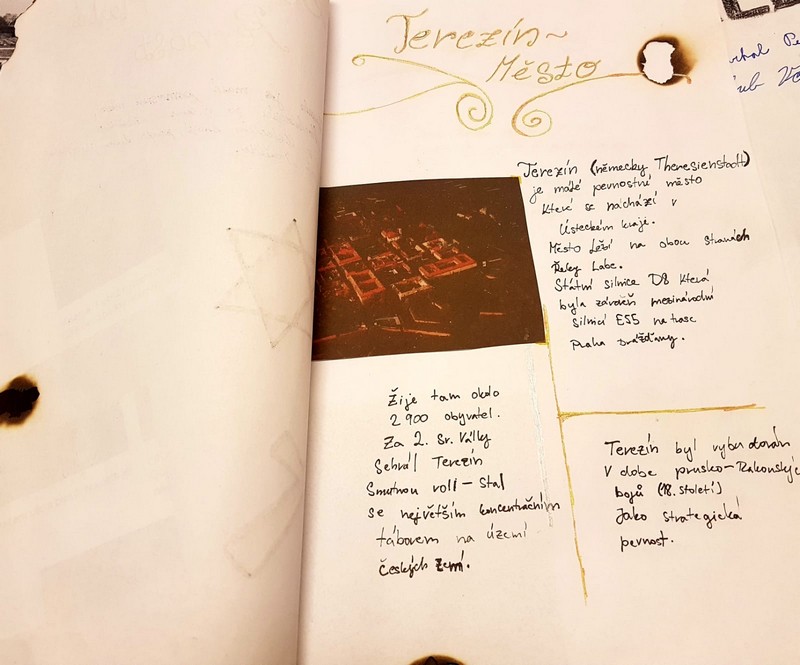 Terezín~
Město
Terezín (německy Theresienstadt)
je malé pevnostní město
které se nachází v
Ústeckém kraje.
Město Leší na obou stranách
Řeky Labe.
Státní silnice D8 která
byla zároveň mezinárodní
silnicí E55 na trase
Praha Drážďany.
Žije tam okolo
2 900 obyvatel.
Za 2. Sv. Války
Sehrál Terezín
Smutnou roli – Stal
se největším koncentračním
táborem na území
Českých Zemí.
Terezín byl vybudován
v dobe prusko-Rakouských
bojů (18. století)
Jako strategická
pevnost.